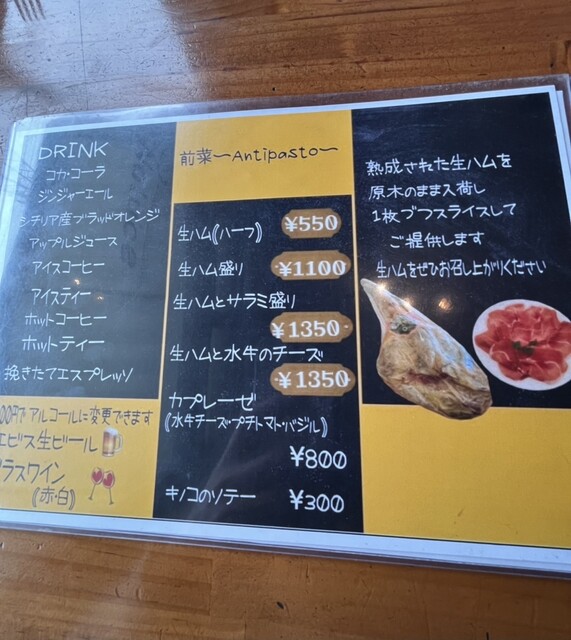 DRINK
コカ・コーラ
ジンジャーエール
シチリア産ブラッドオレンジ
アップルジュース
アイスコーヒー
アイスティー
ホットコーヒー
ホットティー
挽きたてエスプレッソ
00円で アルコールに変更できます
エビス生ビール
グラスワイン
(赤・白)
前菜〜Antipasto〜
生ハム(ハーフ) ¥550
生ハム盛り ¥1100
生ハムとサラミ盛り
¥1350
生ハムと水牛のチーズ
¥1350
カプレーゼ
(水牛チーズ・プチトマト・バジル)
¥800
キノコのソテー ¥300
熟成された生ハムを
原木のまま入荷し
1枚づつスライスして
ご提供します
生ハムをぜひお召し上がりください